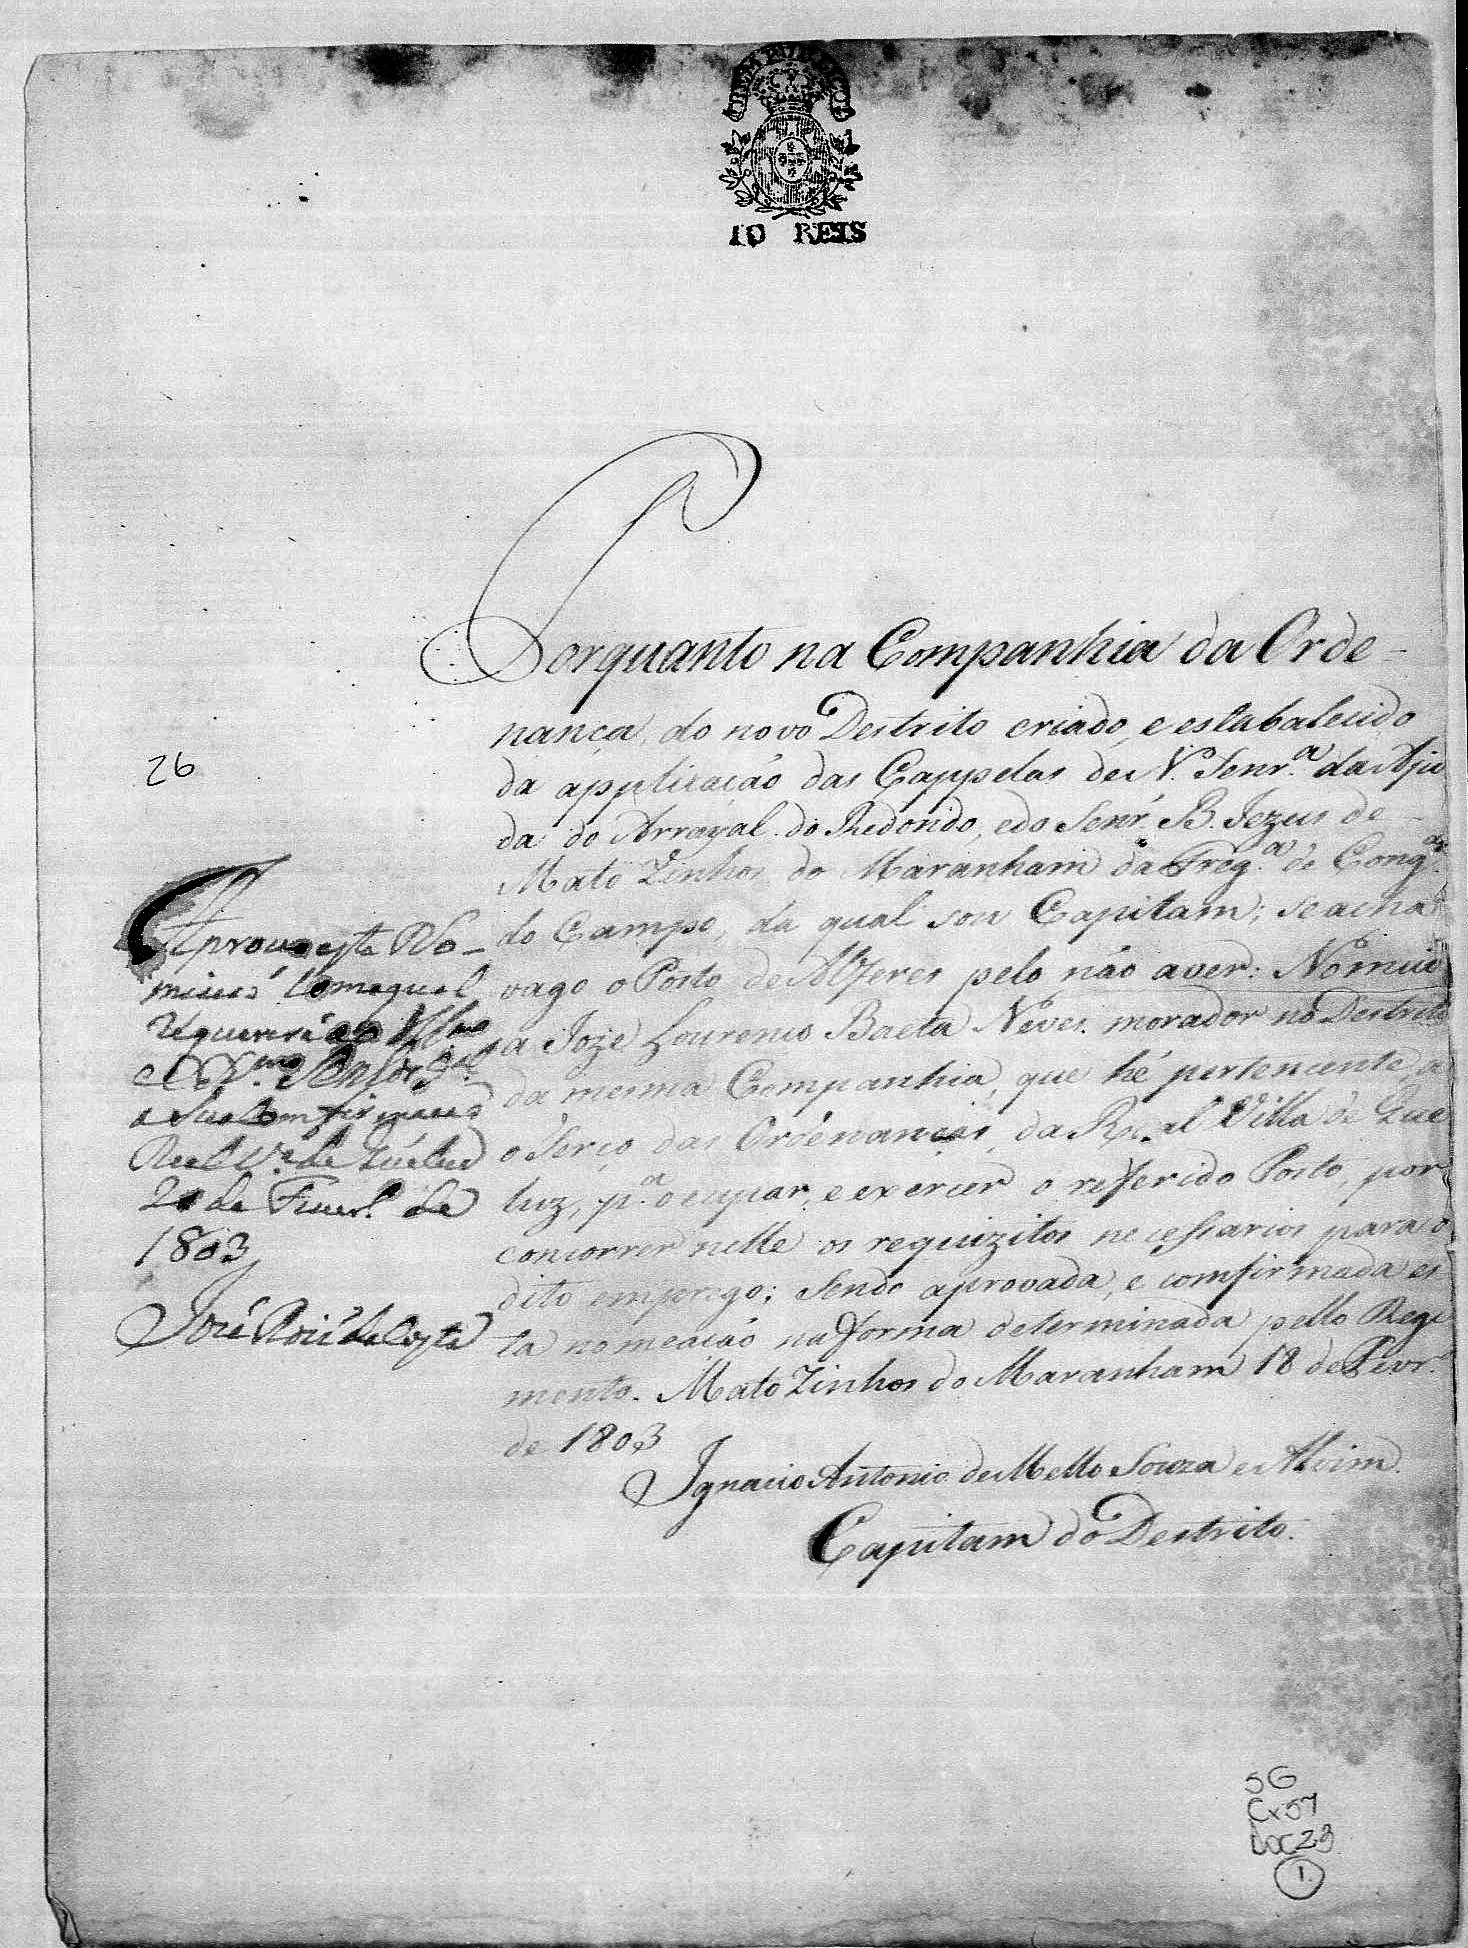 10 REIS
Porquanto na Companhia da Orde-
nança, do novo Destrito criado, e establalecido
da applicação das Cappelas de N. Senr.ª da Aju
da do Arrayal do Redondo, e do Senr. B. Jezus de
Mato Zinhos do Maranham da Freg.ª de Cong.as
do Campo, da qual sou Capitam; se acha
vago o Posto de Alferes pelo não aver: Nomuio
a Joze Lourenço Baeta Neves, morador no Destrito
da mesma Companhia, que hé pertencente, a
o Terço das Ordenanças, da Real Villa de Que
luz, p.ª ocupar, e exercer o referido Posto, por
concorrer nelle os requizitos necessarios para o
dito emprego; sendo aprovada, e comfirmada es
ta nomeação na forma determinada pello Regi
mento. Mato Zinhos do Maranham 18 de Fevr.º
de 1803
Ignacio Antonio de Mello Souza e Alvim.
Capitam do Destrito.
26
Aprovo esta No-
miaçaó Com a qual
requererá ao Ill.mo
e Ex.mo Senhor G.al
a Sua Comfirmaçaó
Real V.ª de Quelus
20 de Fever.º de
1803
José Roiz da Costa
SG
Cx57
Doc23
1